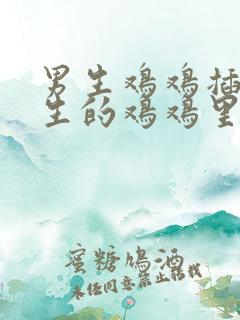 男生鸡鸡插
生的鸡鸡里
蜜糖鳩酒
未经同意禁止转载